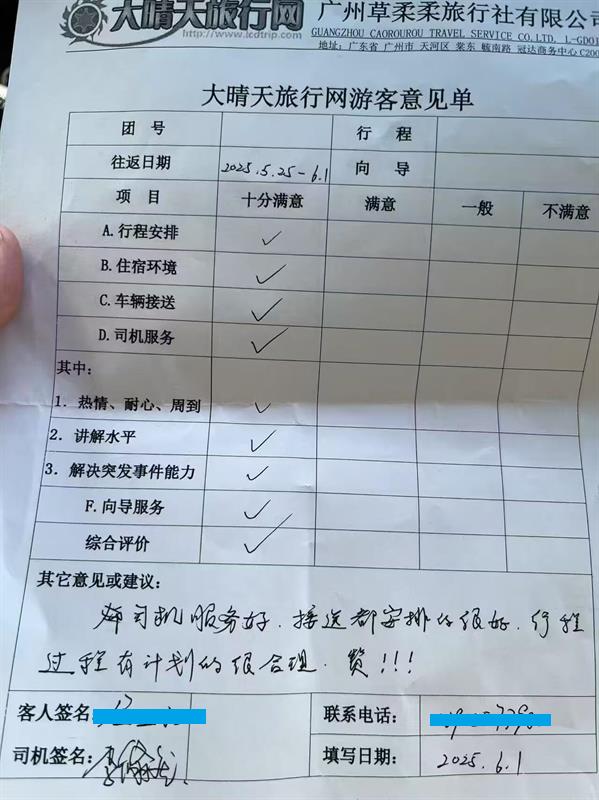 大晴天旅行网
http://www.lcdtrip.com
广州草柔柔旅行社有限公司
GUANGZHOU CAOROUROU TRAVEL SERVICE CO.LTD. L-GD01
地址: 广东省 广州市 天河区 棠东 毓南路 冠达商务中心 C200
大晴天旅行网游客意见单
团 号 行 程
往返日期 2025.5.25-6.1 向 导
项 目 十分满意 满意 一般 不满意
A.行程安排 ✓
B.住宿环境 ✓
C.车辆接送 ✓
D.司机服务 ✓
其中:
1. 热情、耐心、周到 ✓
2. 讲解水平 ✓
3. 解决突发事件能力 ✓
F.向导服务 ✓
综合评价 ✓
其它意见或建议:
司机服务好.接送都安排的很好.行程
过程有计划的很合理.赞!!!
客人签名: 联系电话:
司机签名: 填写日期: 2025.6.1